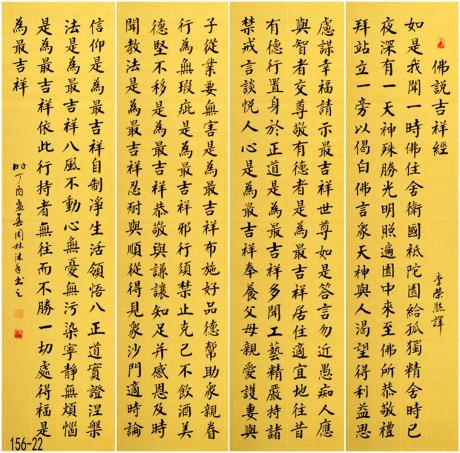 佛說吉祥經 李榮熙譯
如是我聞一時佛住舍衛國祇陀園給孤獨精舍時已
夜深有一天神殊勝光明照遍園中來至佛所恭敬禮
拜站立一旁以偈白佛言眾天神與人渴望得利益思
慮謀幸福請示最吉祥世尊如是答言勿近愚痴人應
與智者交尊敬有德者是為最吉祥居住適宜地往昔
有德行置身於正道是為最吉祥多聞工藝精嚴持諸
禁戒言談悅人心是為最吉祥奉養父母親愛護妻與
子從業要無害是為最吉祥布施好品德幫助眾親眷
行為無瑕疵是為最吉祥邪行須禁止克己不飲酒美
德堅不移是為最吉祥恭敬與謙讓知足并感恩及時
聞教法是為最吉祥忍耐與順從得見眾沙門適時論
信仰是為最吉祥自制淨生活領悟八正道實證涅槃
法是為最吉祥八風不動心無憂無污染寧靜無煩惱
是為最吉祥依此行持者無往而不勝一切處得福是
為最吉祥 時丁酉 周林沐手書之
156-22